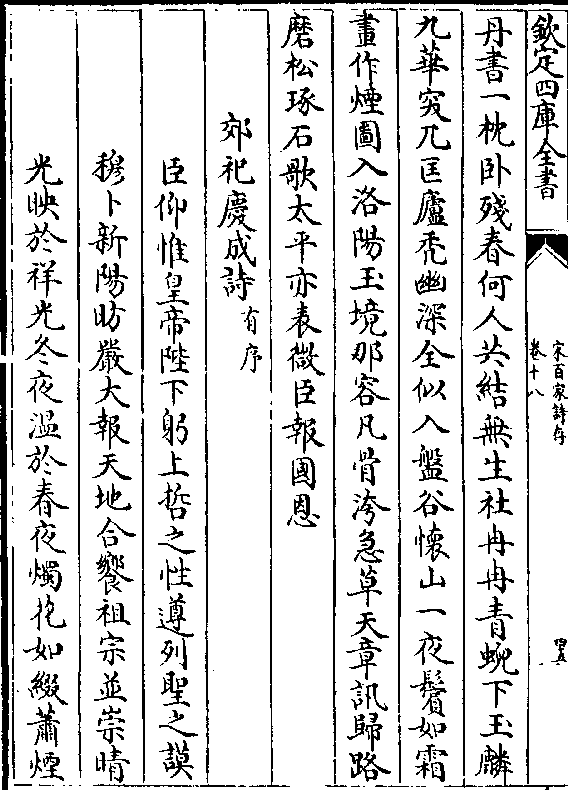 欽定四庫全書
宋百家詩存
卷十八
四五
丹書一枕卧殘春何人共結無生社冉冉青蜺下玉麟
九華突兀匡廬禿幽深全似入盤谷懷山一夜鬢如霜
畫作煙圖入洛陽玉境那容凡骨洿急草天章訊歸路
磨松琢石歌太平亦表微臣報國恩
郊祀慶成詩有序
臣仰惟皇帝陛下躬上哲之性遵列聖之謨
穆卜新陽昉嚴大報天地合饗祖宗並崇晴
光映於祥光冬夜溫於春夜燭芤如綴蕭煙